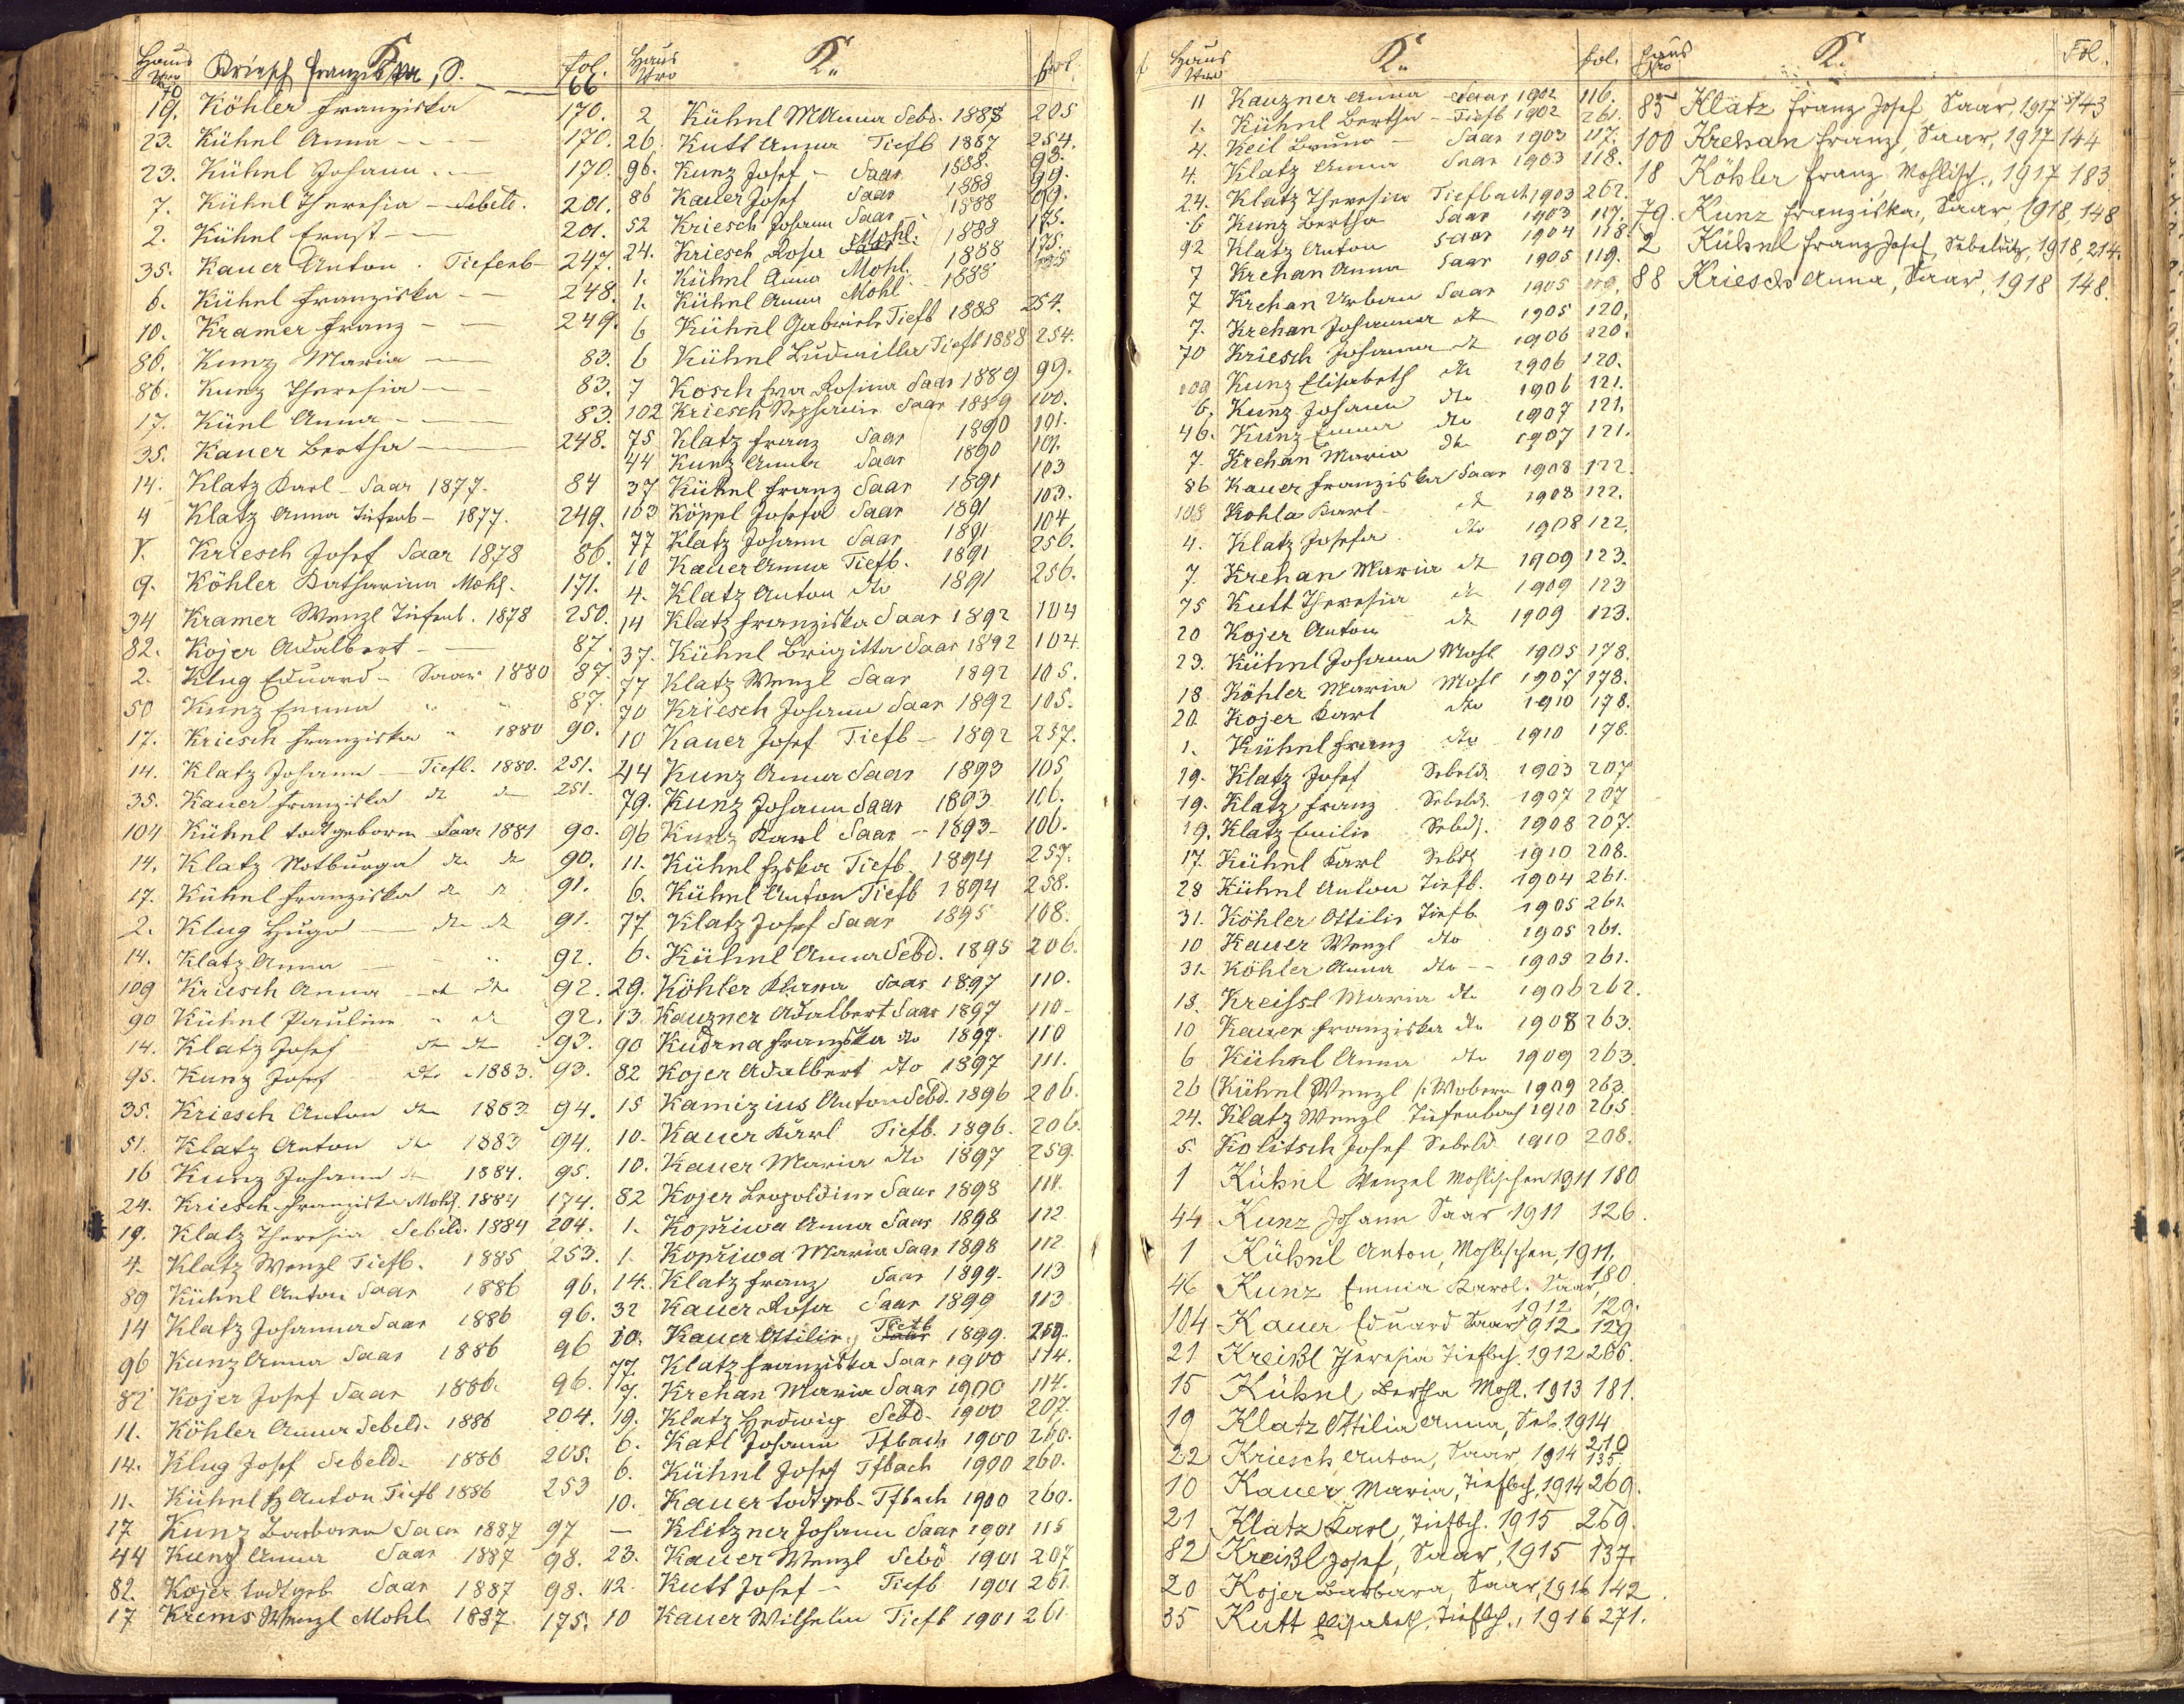 Haus Nro K. fol.
70 Kriesch Franziska, S. 66
19. Köhler Franziska 170.
23. Kühnl Anna - - - 170.
23. Kühnl Johann - - 170.
7. Kühnl Theresia - Sebeld. 201.
2. Kühnl Ernst - 201.
35. Kauer Anton . Tiefenb - 247.
6. Kühnl Franziska - - 248.
10. Kramer Franz - - 249.
86. Kunz Maria - 83.
86. Kunz Theresia - 83.
17. Künl Anna - 83.
35. Kauer Bertha - 248.
14. Klatz Karl - Saar 1877. 84
4 Klatz Anna Tiefenb - 1877. 249.
Kriesch Josef Saar 1878 86.
9. Köhler Katharina Mohl. 171.
34 Kramer Wenzl Tiefenb. 1878 250.
82. Kojer Adalbert - 87.
2. Klug Eduard - Saar 1880 87.
50 Kunz Emma " " 87.
17. Kriesch Franziska " 1880 90.
14. Klatz Johann - Tiefb. 1880. 251.
35. Kauer Franziska dto dto 251.
104 Kühnl todtgeboren Saar 1881 90.
14. Klatz Notburga dto dto 90.
17. Kühnl Franziska dto dto 91.
2. Klug Hugo - dto dto 91.
14. Klatz Anna - " 92.
109 Kriesch Anna - dto dto 92.
90 Kühnl Pauline " dto 92.
14. Klatz Josef dto dto 93.
95. Kunz Josef dto 1883. 93.
35. Kriesch Anton dto 1883 94.
51. Klatz Anton dto 1883 94.
16 Kunz Johann dto 1884. 95.
24. Kriesch Franziska Mohl. 1884 174.
19. Klatz Theresia Sebeld. 1884 204.
4. Klatz Wenzl Tiefb. 1885 253.
89 Kühnl Anton Saar 1886 96.
14 Klatz Johanna Saar 1886 96.
96 Kunz Anna Saar 1886 96
82 Kojer Josef Saar 1886. 96.
11. Köhler Anna Sebeld. 1886 204.
14. Klug Josef Sebeld. 1886 205.
11. Kühnl Anton Tiefb 1886 253
17 Kunz Barbara Saar 1887 97
44 Kunz Anna Saar 1887 98.
82. Kojer todtgeb. Saar 1887 98.
17 Krems Wenzl Mohl. 1887 175.
Haus Nro K. fol.
2 Kühnl M Anna Sebd. 1888 205
26. Kutt Anna Tiefb 1887 254.
96. Kunz Josef - Saar 1888. 98.
86 Kauer Josef Saar 1888 99.
52 Kriesch Johann Saar 1888 99.
24. Kriesch Rosa Mohl. 1888 175.
1. Kühnl Anna Mohl. 1888 175.
1. Kühnl Anna Mohl. 1888 175
6 Kühnl Gabriele Tiefb 1888 254.
6 Kühnl Ludmilla Tiefb 1888 254.
7 Kosch Rosina Saar 1889 99.
102 Kriesch Stephanie Saar 1889 100.
75 Klatz Franz Saar 1890 101.
44 Kunz Anna Saar 1890 101.
37 Kühnl Franz Saar 1891 103
103 Köppl Josefa Saar 1891 103.
77 Klatz Johann Saar 1891 104
10 Kauer Anna Tiefb. 1891 256.
4. Klatz Anton dto 1891 256.
14 Klatz Franziska Saar 1892 104
37. Kühnl Brigitta Saar 1892 104.
77 Klatz Wenzl Saar 1892 105.
70 Kriesch Johann Saar 1892 105.
10 Kauer Josef Tiefb - 1892 257.
44 Kunz Anna Saar 1893 105
79. Kunz Johann Saar 1893 106.
96 Kunz Karl Saar - 1893 - 106.
11. Kühnl Tiefb. 1894 257.
6. Kühnl Anton Tiefb 1894 258.
77 Klatz Josef Saar 1895 108.
6. Kühnl Anna Sebd. 1895 206.
29. Köhler Klara Saar 1897 110.
13. Kauzner Adalbert Saar 1897 110 -
90 Kudrna Franziska dto 1897. 110
82 Kojer Adalbert dto 1897 111.
15 Kamizius Anton Sebd. 1896 206.
10. Kauer Karl Tiefb. 1896. 206.
10. Kauer Maria dto 1897 259.
82 Kojer Leopoldine Saar 1898 111.
1. Kopřiwa Anna Saar 1898 112
1. Kopřiwa Maria Saar 1898 112
14. Klatz Franz Saar 1899. 113
32 Kauer Rosa Saar 1899 113
10. Kauer Ottilie, Tiefb 1899. 259.
77. Klatz Franziska Saar 1900 114.
7. Krehan Maria Saar 1900 114.
19. Klatz Hedwig Sebd. 1900 207.
6. Katl Johann Tfbach 1900 260.
6. Kühnl Josef Tfbach 1900 260.
10. Kauer todtgeb. Tfbach 1900 260.
- Klitzner Johann Saar 1901 115
23. Kauer Wenzl Sebd 1901 207
12. Kutt Josef - Tiefb 1901 261
10 Kauer Wilhelm Tiefb 1901 261
Haus Nro K. fol.
11 Kauzner Anna - Saar 1902 116.
1. Kühnl Bertha - Tiefb 1902 261.
4. Keil Bruno - Saar 1903 117.
4. Klatz Anna Saar 1903 118.
24. Klatz Theresia Tiefbach 1903 262.
6 Kunz Bertha Saar 1903 117.
92 Klatz Anton Saar 1904 118.
7 Krehan Anna Saar 1905 119.
7 Krehan Urban Saar 1905 119.
7. Krehan Johanna dto 1905 120.
70 Kriesch Johanna dto 1906 120.
109 Kunz Elisabeth dto 1906 120.
6. Kunz Johann dto 1906 121.
46. Kunz Emma dto 1907 121.
7. Krehan Maria dto 1907 121.
86 Kauer Franziska Saar 1908 122.
108 Kohla Karl dto 1908 122.
4. Klatz Josefa dto 1908 122.
7. Krehan Maria dto 1909 123.
75 Kutt Theresia dto 1909 123
20 Kojer Anton dto 1909 123.
23. Kühnl Johann Mohl 1905 178.
18 Köhler Maria Mohl 1907 178.
20. Kojer Karl dto 1910 178.
1. Kühnl Franz dto 1910 178.
19. Klatz Josef Sebeld. 1903 207
19. Klatz Franz Sebeld. 1907 207
19. Klatz Emilie Sebd. 1908 207.
17. Kühnl Karl 1910 208.
28 Kühnl Anton Tiefb. 1904 261.
31. Köhler Ottilie Tiefb. 1905 261.
10 Kauer Wenzl dto 1905 261.
31. Köhler Anna dto - - 1905 261.
18. Kreissl Maria dto 1906 262.
10 Kauer Franziska dto 1908 263.
6 Kühnl Anna dto 1909 263.
26 Kühnl Wenzl 1909 263.
24. Klatz Wenzl Tiefenbach 1910 265
5. Kolitsch Josef Sebeld 1910 208.
1 Kühnl Wenzel Mohlischen 1911 180
44 Kunz Johann Saar 1911 126.
1 Kühnl Anton, Mohlischen, 1911, 180
46 Kunz Emmia Karol. Saar, 1912 129.
104 Kauer Eduard Saar 1912 129
21 Kreißl Theresia Tiefbch. 1912 266.
15 Kühnl Bertha Mohl. 1913 181.
19 Klatz Ottilia Anna, Seb. 1914 210
22 Kriesch Anton, Saar, 1914 135.
10 Kauer Maria, Tiefbch, 1914 269.
21 Klatz Karl, Tiefbch. 1915 269.
82 Kreißl Josef, Saar, 1915 137.
20 Kojer Barbara, Saar, 1916 142.
35 Kutt Elisabeth, Tiefbch., 1916 271.
Haus Nro K. Fol.
85 Klatz Franz Josef, Saar, 1917 143
100 Krehan Franz, Saar, 1917 144
18 Köhler Franz Mohlisch., 1917 183
79. Kunz Franziska, Saar, 1918, 148
2 Kühnl Franz Josef, Sebelditz, 1918, 214.
88 Kriesch Anna, Saar, 1918 148.